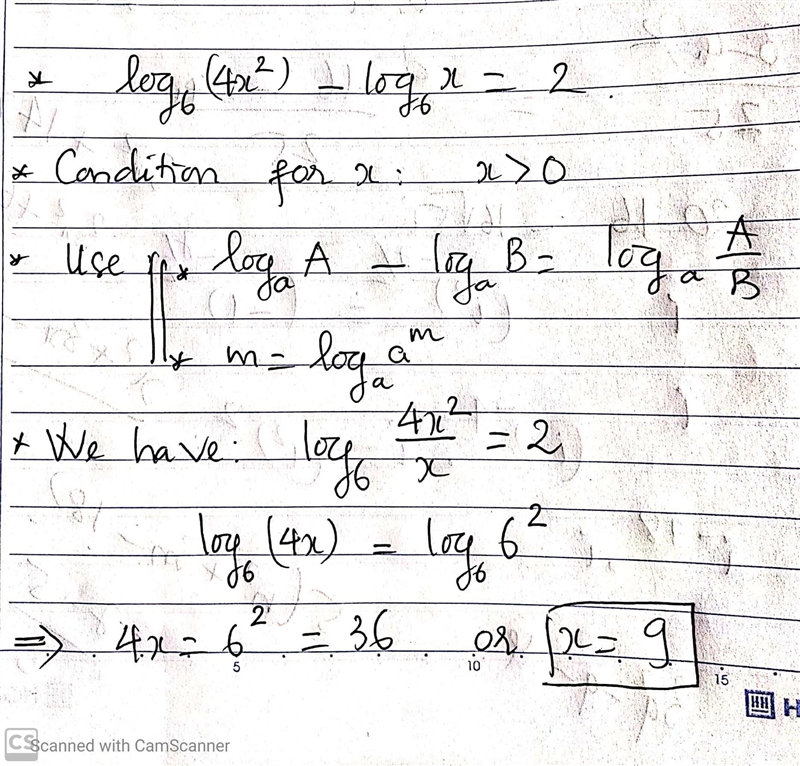 * log₆ (4x²) – log₆ x = 2
* Condition for x: x > 0
* Use * logₐ A – logₐ B = logₐ A/B
* m = logₐ aᵐ
* We have: log₆ 4x²/x = 2
log₆ (4x) = log₆ 6²
⇒ 4x = 6² = 36 or x = 9
5 10 15
CS Scanned with CamScanner